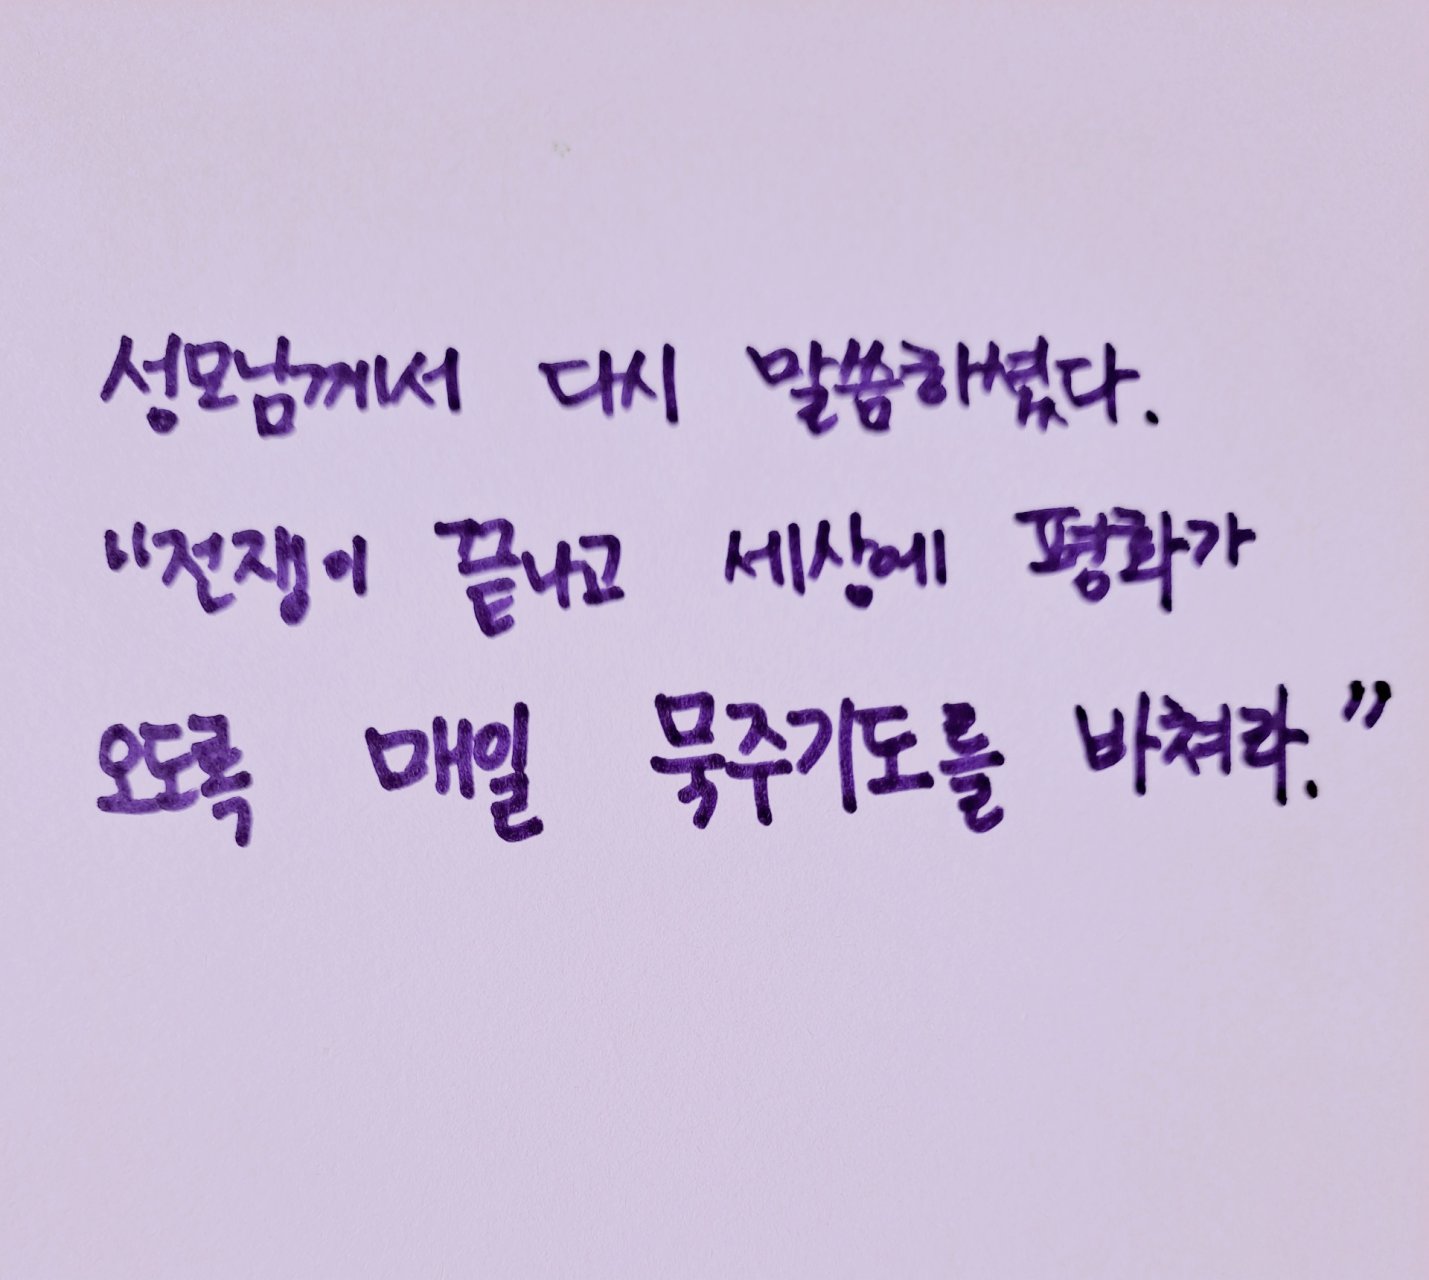 성모님께서 다시 말씀하셨다.
"전쟁이 끝나고 세상에 평화가
오도록 매일 묵주기도를 바쳐라."